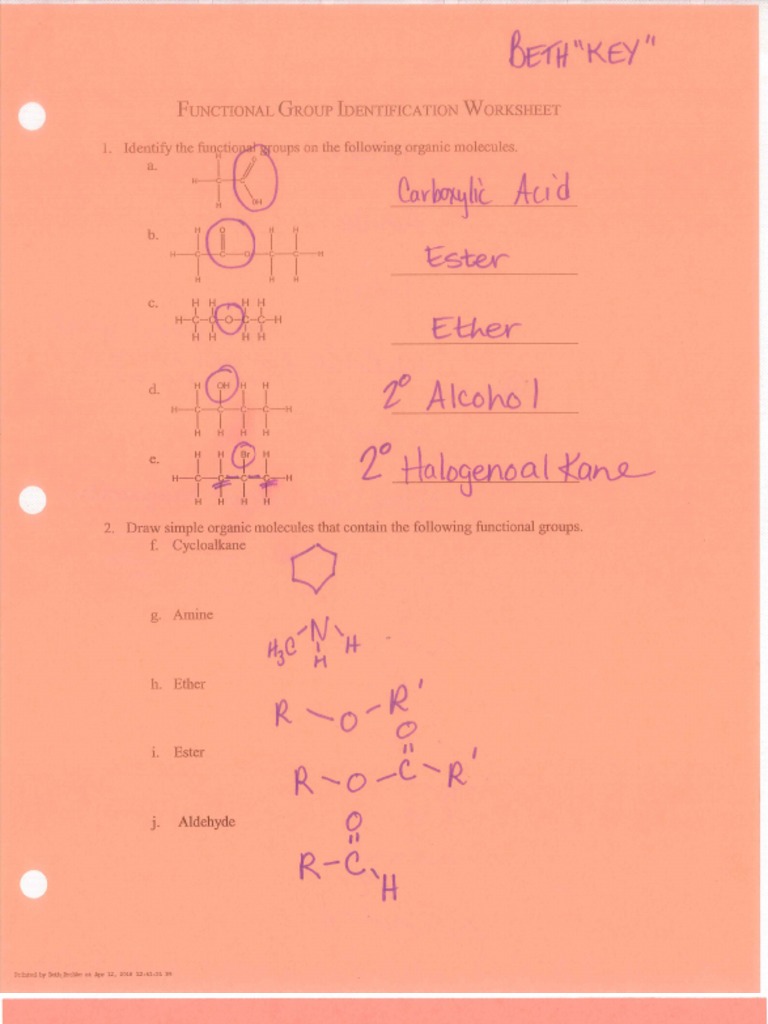 BETH "KEY"
FUNCTIONAL GROUP IDENTIFICATION WORKSHEET
1. Identify the functional groups on the following organic molecules.
a.
H O
H C C
H OH
Carboxylic Acid
b.
H O H H
H C C O C C H
H H H
Ester
c.
H H H H
H-C-C-O-C-C-H
H H H H
Ether
d.
H OH H H
H C C C C H
H H H H
2° Alcohol
e.
H H Br H
H C C C C H
H H H H
2° Halogenoalkane
2. Draw simple organic molecules that contain the following functional groups.
f. Cycloalkane
g. Amine
H3C N H
H
h. Ether
R - O - R'
i. Ester
O
R - O - C - R'
j. Aldehyde
O
R - C
H